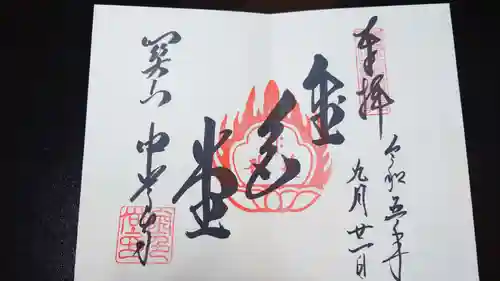 奉拝
令和五年
九月廿一日
金色堂
関山
中尊寺